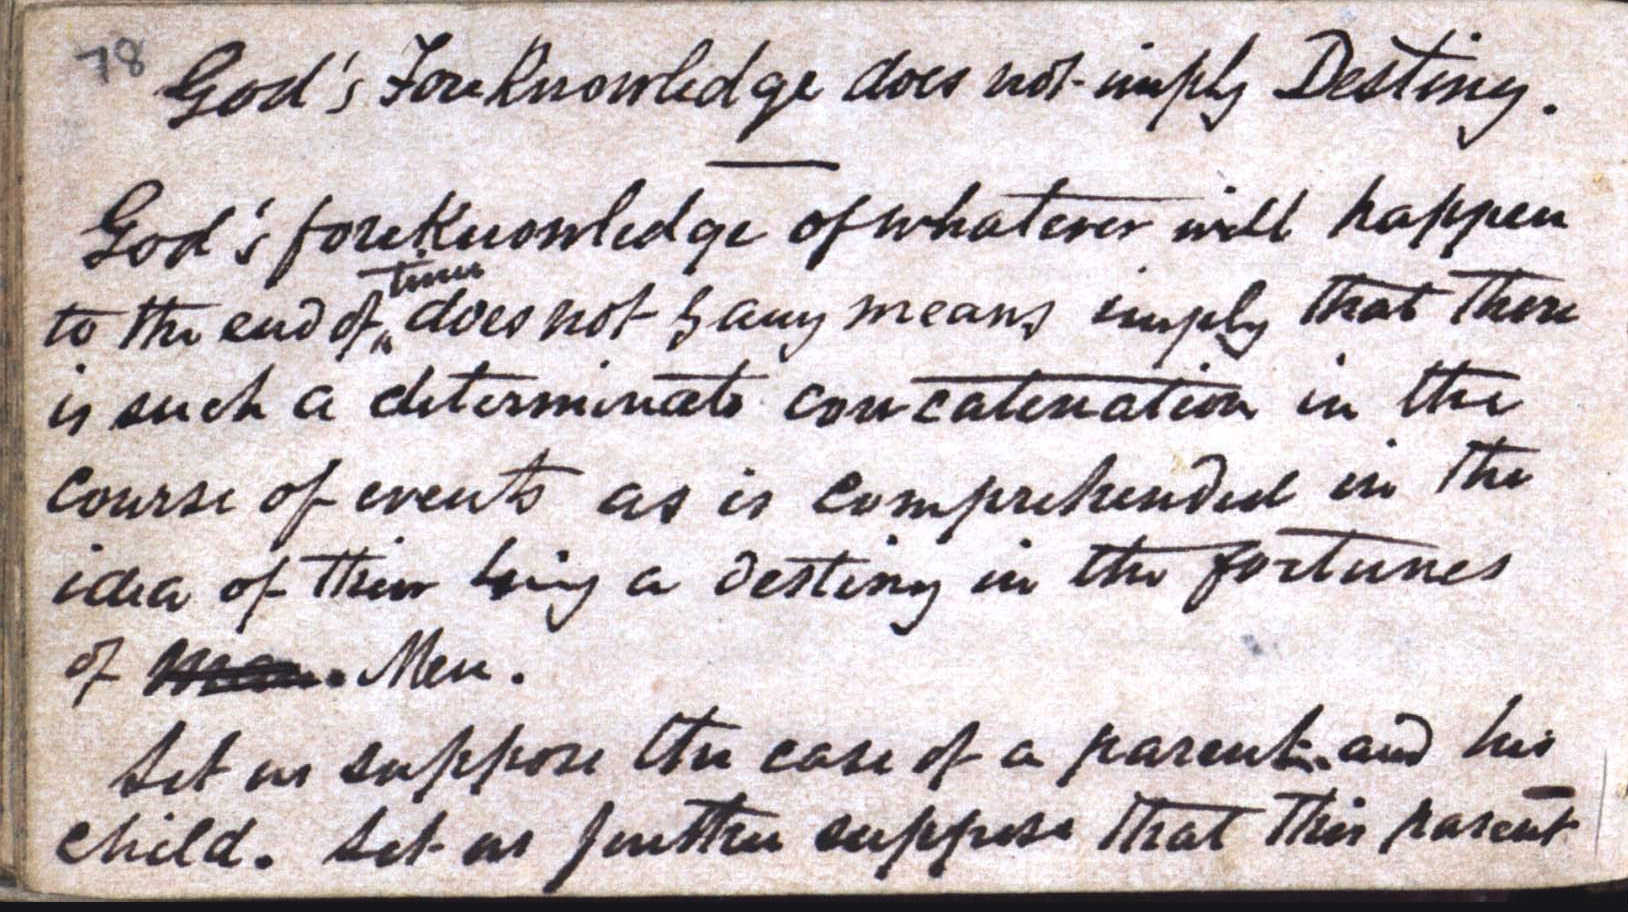 78
God's Foreknowledge does not imply Destiny.
God's foreknowledge of whatever will happen
to the end of time does not by any means imply that there
is such a determinate concatenation in the
course of events as is comprehended in the
idea of their being a destiny in the fortunes
of Men.
Let us suppose the case of a parent and his
child. Let us further suppose that this parent